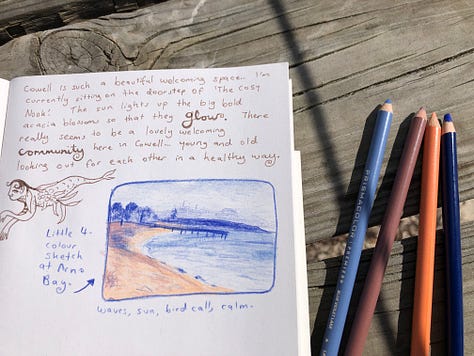 Cowell is such a beautiful welcoming space.. I'm
currently sitting on the doorstep of 'The Cosy
Nook'. The sun lights up the big bold
acacia blossoms so that they glow. There
really seems to be a lovely welcoming
community here in Cowell... young and old
looking out for each other in a healthy way.
Little 4.
colour
sketch
at Arno
Bay.
waves, sun, bird call, calm.
PRISMACOLOR